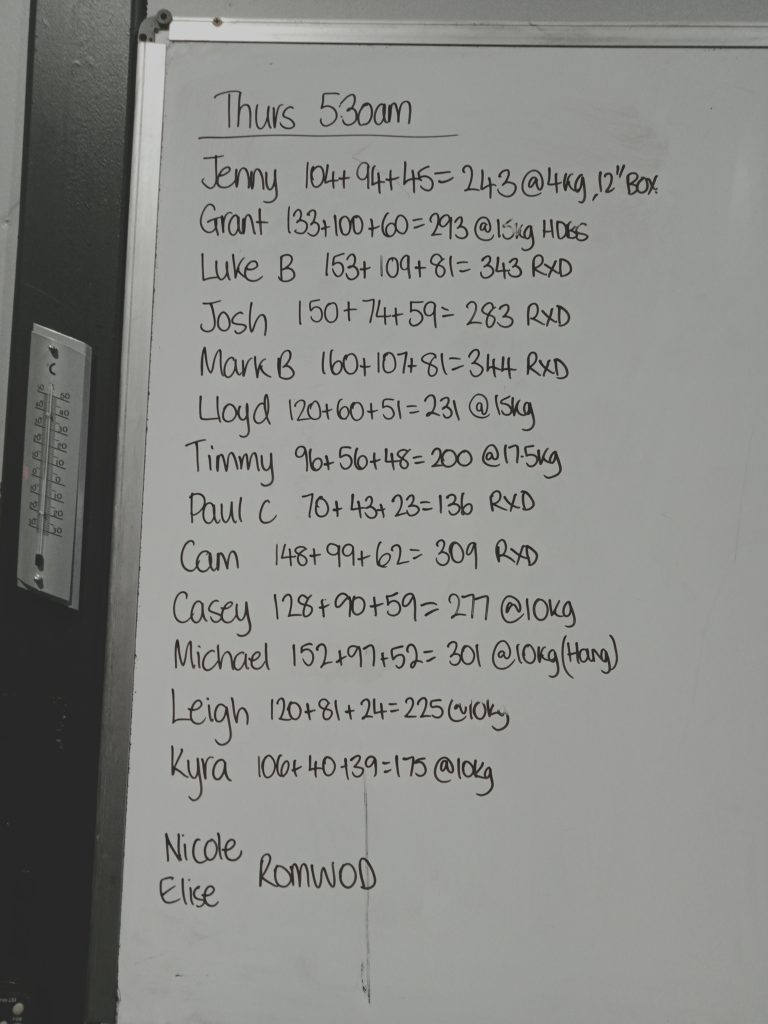 Thurs 530am
Jenny 104+94+45=243@4kg, 12" BOX
Grant 133+100+60=293@15kg
Luke B 153+109+81=343 RXD
Josh 150+74+59=283 RXD
Mark B 160+107+81=344 RXD
Lloyd 120+60+51=231 @15kg
Timmy 96+56+48=200 @17.5kg
Paul C 70+43+23=136 RXD
Cam 148+99+62=309 RXD
Casey 128+90+59=277 @10kg
Michael 152+97+52=301 @10kg (Hang)
Leigh 120+81+24=225@10kg
Kyra 106+40+39=175 @10kg
Nicole
Elise
ROMWOD